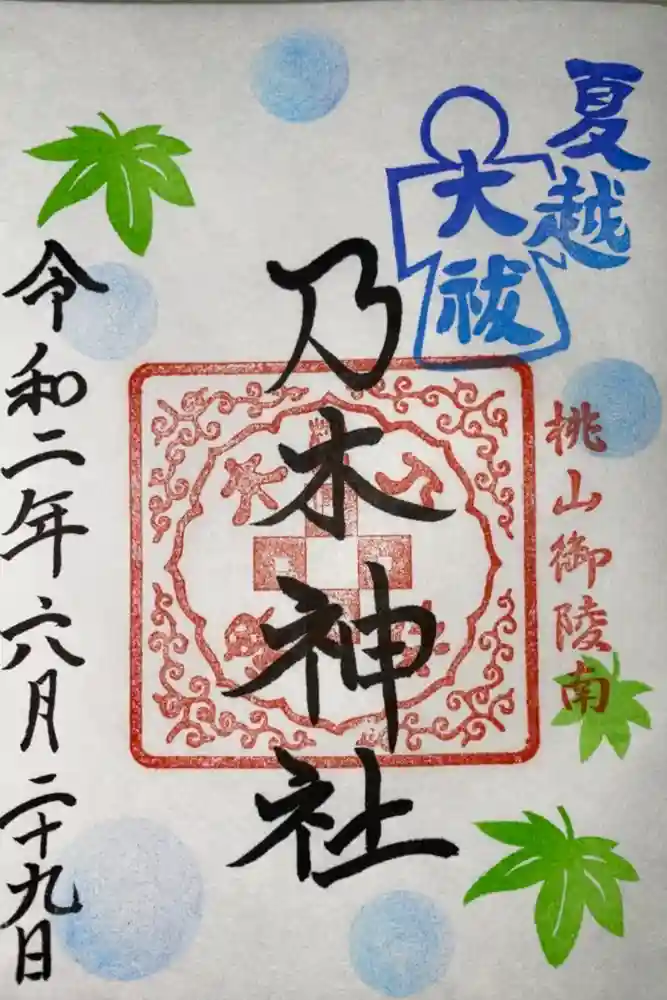 夏越
大祓
桃山御陵南
乃木神社
令和二年六月二十九日